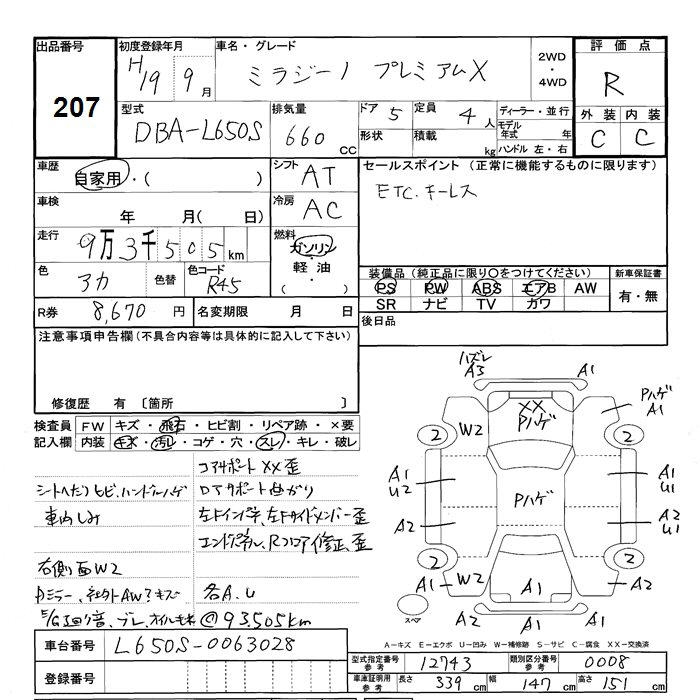 出品番号 初度登録年月 車名・グレード 評価点
207 H19年 9月 ミラジーノ プレミアムX 2WD・4WD R
型式 排気量 ドア 5 定員 4人 ディーラー・並行 外装 内装
DBA-L650S 660cc 形状 積載 kg モデル年式 年 C C
ハンドル 左・右
車歴 自家用・( ) シフト AT セールスポイント (正常に機能するものに限ります)
車検 年 月( 日) 冷房 AC ETC.キーレス
走行 9万3千505km 燃料 ガソリン・軽油・( )
色 アカ 色替 色コード R45 装備品(純正品に限り○をつけてください) 新車保証書
PS PW ABS エアB AW 有・無
R券 8,670円 名変期限 月 日 SR ナビ TV カワ
注意事項申告欄(不具合内容等は具体的に記入して下さい) 後日品
修復歴 有 〔箇所 〕
検査員記入欄 FW キズ・飛石・ヒビ割・リペア跡・×要
内装 キズ・汚レ・コゲ・穴・スレ・キレ・破レ
コアサポートXX歪
シートへたりヒビ、ハンドルハゲ
車内しみ
右側面W2
各A.U
@93,505km
車台番号 L650S-0063028
登録番号
ハズレ
A3 A1
XX
Pハゲ
Pハゲ
A1
2 W2 2
A1
U2
Pハゲ
A1
U1
A2 A2
U1
2 2
A1 W2 A1 A2
スペア A1 A2
A-キズ E-エクボ U-凹み W-補修跡 S-サビ C-腐食 XX-交換済
型式指定番号 参考 12743 類別区分番号 参考 0008
車庫証明用 参考 長さ 339cm 幅 147cm 高さ 151cm